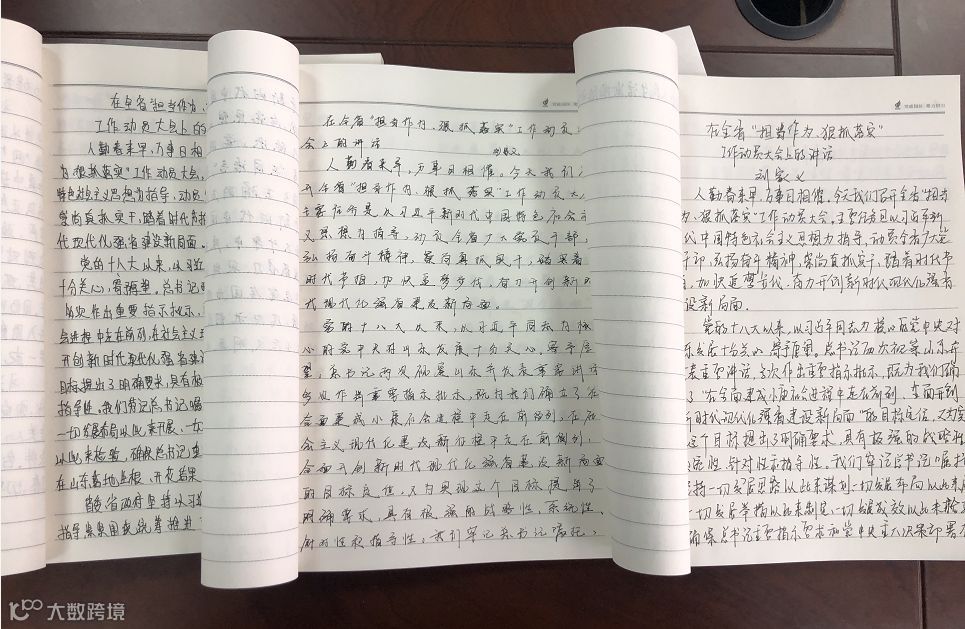 在全省“担当作为、
工作动员大会上的
人勤春来早,万事日相
为狠抓落实”工作动员大会,
特色社会主义思想为指导,动员
崇尚真抓实干,踏着时代节拍
代现代化强省建设新局面。
党的十八大以来,以习近
十分关心,寄予厚望。总书记
多次作出重要指示批示,
会进程中走在前列,在社会主义现
开创新时代现代化强省建设
目标提出了明确要求,具有极
指导性。我们牢记总书记嘱
一切发展布局以此来开展、一切
以此来检验,确保总书记重
在山东落地生根、开花结果
省委、省政府坚持以习近
在全省“担当作为、狠抓落实”工作动员大
会上的讲话
刘家义
人勤春来早,万事日相催。今天我们
开全省“担当作为、狠抓落实”工作动员大
主要任务是以习近平新时代中国特色社会主
义思想为指导,动员全省广大党员干部,
弘扬实干精神,崇尚真抓实干,踏着
时代节拍,加快追梦步伐,奋力开创新
代现代化强省建设新局面。
党的十八大以来,以习近平同志为核
心的党中央对山东发展十分关心、寄予厚
望,总书记两次视察山东并发表重要讲话
多次作出重要指示批示,既为我们确立了在
全面建成小康社会进程中走在前列,在社
会主义现代化建设新征程中走在前列,
全面开创新时代现代化强省建设新局面
的目标定位,又为实现这个目标提出了
明确要求,具有极强的战略性、系统性、
针对性和指导性。我们牢记总书记嘱托,
在全省“担当作为、狠抓落实”
工作动员大会上的讲话
刘家义
人勤春来早,万事日相催。今天我们召开全省“担当
为、狠抓落实”工作动员大会,主要任务是以习近平新
代中国特色社会主义思想为指导,动员全省广大党
干部,弘扬实干精神,崇尚真抓实干,踏着时代节
,加快追梦步伐,奋力开创新时代现代化强省
设新局面。
党的十八大以来,以习近平同志为核心的党中央对
东发展十分关心、寄予厚望。总书记两次视察山东并
表重要讲话,多次作出重要指示批示,既为我们确
了“在全面建成小康社会进程中走在前列,全面开创
新时代现代化强省建设新局面”的目标定位,又为实
这个目标提出了明确要求,具有极强的战略性
系统性、针对性和指导性。我们牢记总书记嘱托
坚持一切发展思路以此来谋划、一切发展布局以此来
一切发展举措以此来制定、一切发展成效以此来检
确保总书记重要指示要求和党中央重大决策部署在
大数跨境